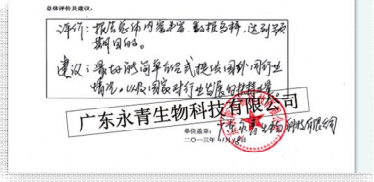 总体评价及建议:
评价: 报告总体内容丰富、数据翔实, 达到预
期目的。
建议: 最好能简单的形式提供国外同行业
情况, 以及国家对行业发展的
广东永青生物科技有限公司
单位盖章:
二〇一三年